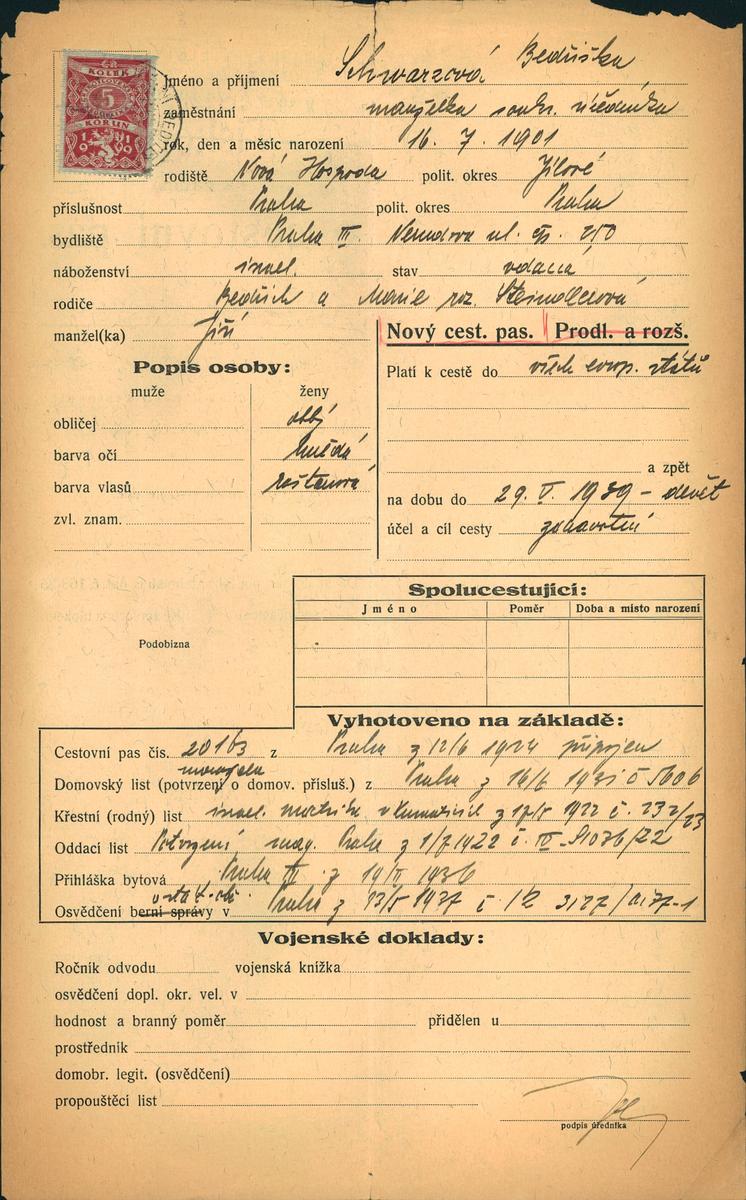 KOLEK
5
KORUN
19 19
Jméno a příjmení Schwarzová Bedřiška
zaměstnání manželka soukr. úředníka
rok, den a měsíc narození 16. 7. 1901
rodiště Nová Hospoda polit. okres Jílové
příslušnost Praha polit. okres Praha
bydliště Praha III. Nerudova ul. čp. 250
náboženství israel. stav vdaná
rodiče Bedřich a Marie roz. Steindlerová
manžel(ka) Jiří
Nový cest. pas. Prodl. a rozš.
Popis osoby:
muže ženy
obličej oblý
barva očí hnědá
barva vlasů kaštanová
zvl. znam.
Platí k cestě do všech evrop. států
a zpět
na dobu do 29. V. 1939 - devět
účel a cíl cesty zdravotní
Podobizna
Spolucestující:
Jméno Poměr Doba a místo narození
Vyhotoveno na základě:
Cestovní pas čís. 20163 z Praha z 12/6 1924 připojen
manžela
Domovský list (potvrzení o domov. přísluš.) z Praha z 16/6 1931 č 5606
Křestní (rodný) list israel. matrika z 17/5 1922 č. 232/23
Oddací list Potvrzení mag. Praha z 1/7 1922 č. IV-51036/22
Přihláška bytová Praha III z 19/II 1936
Osvědčení berní správy v Praha z 13/5 1937 č. 1/2
Vojenské doklady:
Ročník odvodu vojenská knížka
osvědčení dopl. okr. vel. v
hodnost a branný poměr přidělen u
prostředník
domobr. legit. (osvědčení)
propouštěcí list
podpis úředníka